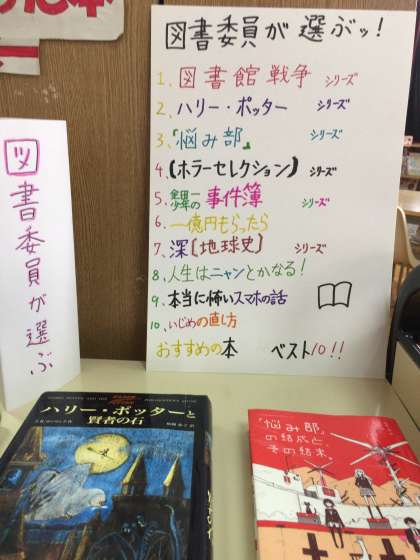 図書委員が選ぶッ!
1. 図書館戦争 シリーズ
2. ハリー・ポッター シリーズ
3.「悩み部」 シリーズ
4.【ホラーセレクション】 シリーズ
5. 金田一少年の事件簿 シリーズ
6. 一億円もらったら
7. 深【地球史】 シリーズ
8. 人生はニャンとかなる!
9. 本当に怖いスマホの話
10. いじめの直し方
おすすめの本 ベスト10!!
図書委員が選ぶ
ハリー・ポッターと
賢者の石
「悩み部」
の結成と、
その結末。